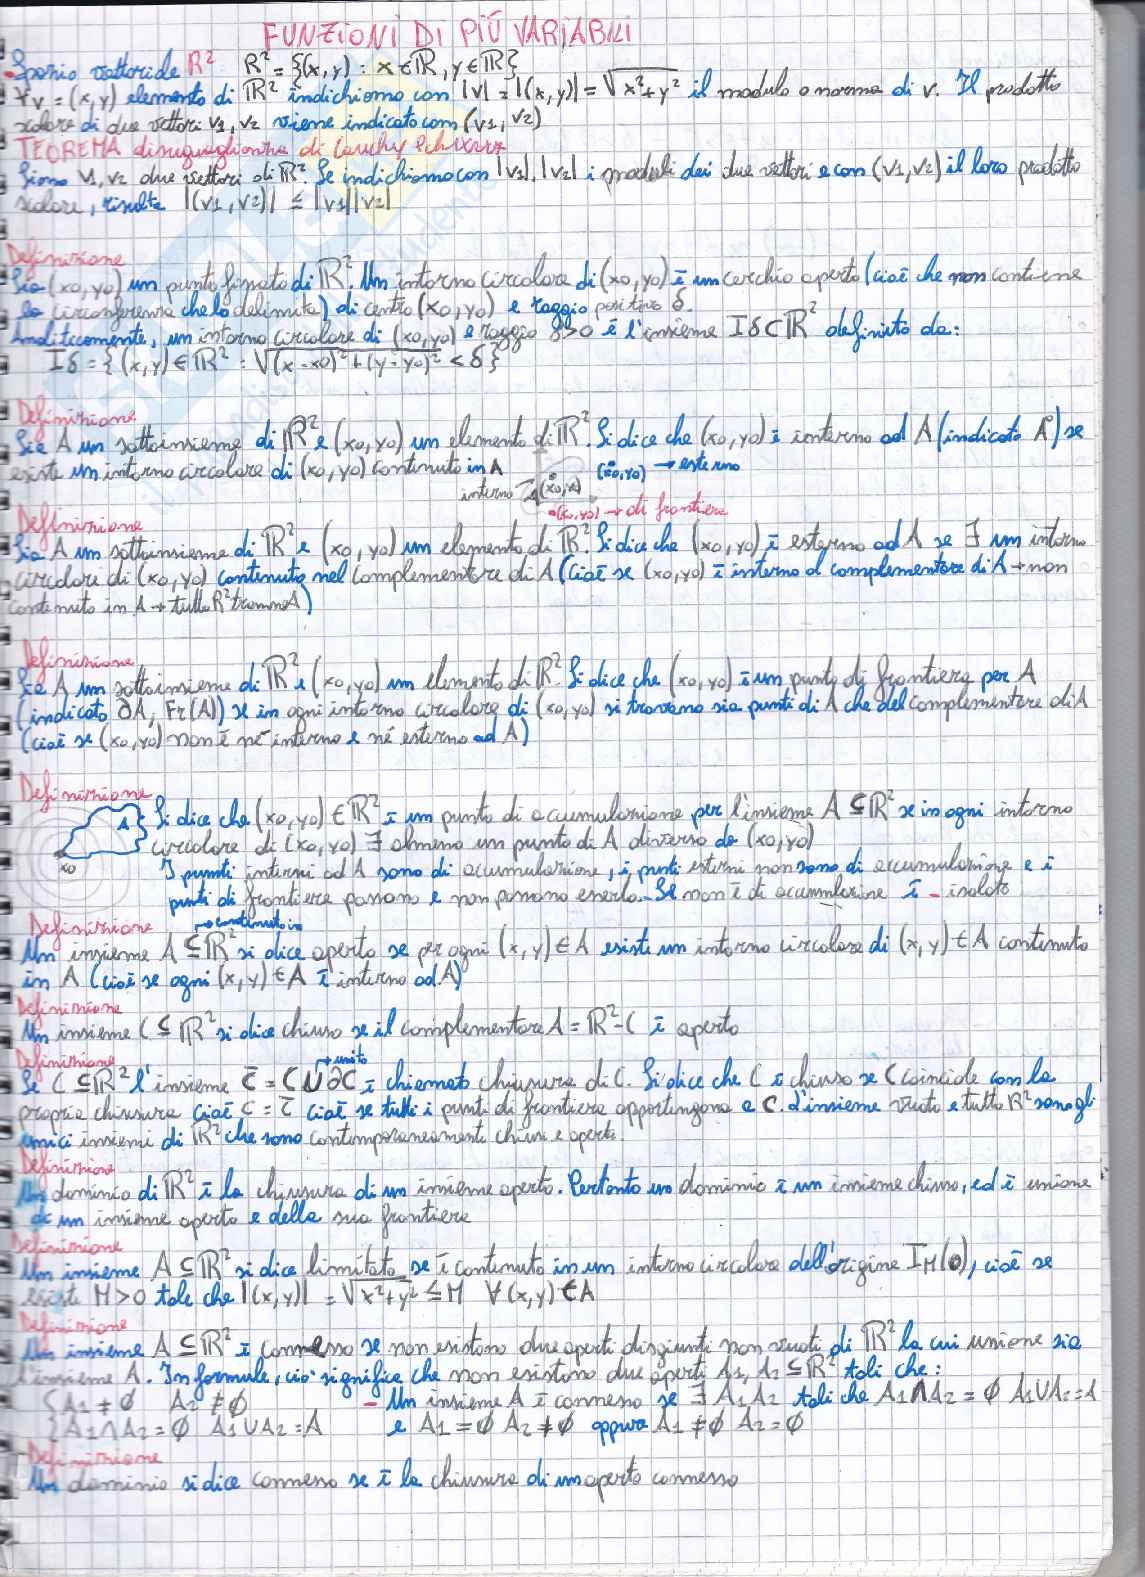 FUNZIONI DI PIÙ VARIABILI
-Spazio vettoriale R² ℝ² = {(x, y) : x ∈ ℝ, y ∈ ℝ}
∀v = (x, y) elemento di ℝ² indichiamo con |v| = |(x, y)| = √x²+y² il modulo o norma di v. Il prodotto
scalare di due vettori v1, v2 viene indicato con (v1, v2)
TEOREMA disuguaglianza di Cauchy Schwarz
Siano v1, v2 due vettori di ℝ². Se indichiamo con |v1|, |v2| i moduli dei due vettori e con (v1, v2) il loro prodotto
scalare, risulta |(v1, v2)| ≤ |v1||v2|
Definizione
Sia (x0, y0) un punto fissato di ℝ². Un intorno circolare di (x0, y0) è un cerchio aperto (cioè che non contiene
la circonferenza che lo delimita) di centro (x0, y0) e raggio positivo δ.
Analiticamente, un intorno circolare di (x0, y0) e raggio δ>0 è l'insieme Iδ⊂ℝ² definito da:
Iδ = {(x, y) ∈ ℝ² : √(x-x0)²+(y-y0)² < δ}
Definizione
Sia A un sottoinsieme di ℝ² e (x0, y0) un elemento di ℝ². Si dice che (x0, y0) è interno ad A (indicato Å) se
esiste un intorno circolare di (x0, y0) contenuto in A
(x0, y0) → esterno
interno
(x0, y0) → di frontiera
Definizione
Sia A un sottoinsieme di ℝ² e (x0, y0) un elemento di ℝ². Si dice che (x0, y0) è esterno ad A se ∃ un intorno
circolare di (x0, y0) contenuto nel complementare di A (cioè se (x0, y0) è interno al complementare di A → non
contenuto in A → tutto R² tranne A)
Definizione
Sia A un sottoinsieme di ℝ² e (x0, y0) un elemento di ℝ². Si dice che (x0, y0) è un punto di frontiera per A
(indicato ∂A, Fr(A)) se in ogni intorno circolare di (x0, y0) si trovano sia punti di A che del complementare di A
(cioè se (x0, y0) non è né interno e né esterno ad A)
Definizione
A
x0
Si dice che (x0, y0) ∈ ℝ² è un punto di accumulazione per l'insieme A ⊆ ℝ² se in ogni intorno
circolare di (x0, y0) ∃ almeno un punto di A diverso da (x0, y0)
I punti interni ad A sono di accumulazione, i punti esterni non sono di accumulazione e i
punti di frontiera possono e non possono esserlo. - Se non è di accumulazione è - isolato
Definizione → contenuto in
Un insieme A ⊆ ℝ² si dice aperto se per ogni (x, y) ∈ A esiste un intorno circolare di (x, y) ∈ A contenuto
in A (cioè se ogni (x, y) ∈ A è interno ad A)
Definizione
Un insieme C ⊆ ℝ² si dice chiuso se il complementare A = ℝ²-C è aperto
Definizione → unito
Se C ⊆ ℝ² l'insieme C̄ = C ∪ ∂C è chiamato chiusura di C. Si dice che C è chiuso se C coincide con la
propria chiusura cioè C = C̄ cioè se tutti i punti di frontiera appartengono a C. L'insieme vuoto e tutto R² sono gli
unici insiemi di ℝ² che sono contemporaneamente chiusi e aperti.
Definizione
Un dominio di ℝ² è la chiusura di un insieme aperto. Pertanto un dominio è un insieme chiuso, ed è unione
di un insieme aperto e della sua frontiera
Definizione
Un insieme A ⊆ ℝ² si dice limitato se è contenuto in un intorno circolare dell'origine I_M(0), cioè se
esiste M>0 tale che |(x, y)| = √x²+y² ≤ M ∀(x, y) ∈ A
Definizione
Un insieme A ⊆ ℝ² è connesso se non esistono due aperti disgiunti non vuoti di ℝ² la cui unione sia
l'insieme A. In formule, ciò significa che non esistono due aperti A1, A2 ⊆ ℝ² tali che:
{A1 ≠ ∅ A2 ≠ ∅ - Un insieme A è connesso se ∃ A1 A2 tali che A1∩A2 = ∅ A1∪A2 = A
{A1∩A2 = ∅ A1∪A2 = A e A1 = ∅ A2 ≠ ∅ oppure A1 ≠ ∅ A2 = ∅
Definizione
Un dominio si dice connesso se è la chiusura di un aperto connesso